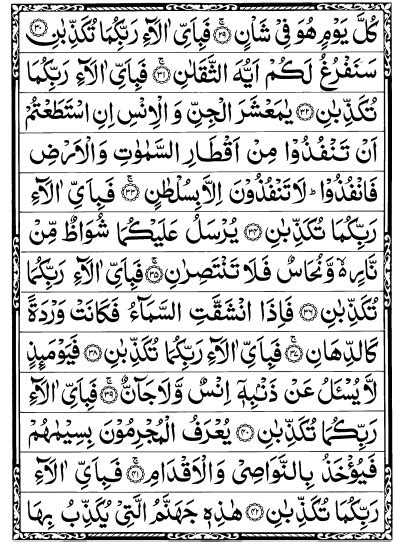 كُلَّ يَوْمٍ هُوَ فِيْ شَاْنٍ ﴿۲۹﴾ فَبِاَيِّ اٰلَآءِ رَبِّكُمَا تُكَذِّبٰنِ ﴿۳۰﴾
سَنَفْرُغُ لَكُمْ اَيُّهَ الثَّقَلٰنِ ﴿۳۱﴾ فَبِاَيِّ اٰلَآءِ رَبِّكُمَا
تُكَذِّبٰنِ ﴿۳۲﴾ يٰمَعْشَرَ الْجِنِّ وَ الْاِنْسِ اِنِ اسْتَطَعْتُمْ
اَنْ تَنْفُذُوْا مِنْ اَقْطَارِ السَّمٰوٰتِ وَ الْاَرْضِ
فَانْفُذُوْا ؕ لَا تَنْفُذُوْنَ اِلَّا بِسُلْطٰنٍ ﴿۳۳﴾ فَبِاَيِّ اٰلَآءِ
رَبِّكُمَا تُكَذِّبٰنِ ﴿۳۴﴾ يُرْسَلُ عَلَيْكُمَا شُوَاظٌ مِّنْ
نَّارٍ ۙ۬ وَّ نُحَاسٌ فَلَا تَنْتَصِرٰنِ ﴿۳۵﴾ فَبِاَيِّ اٰلَآءِ رَبِّكُمَا
تُكَذِّبٰنِ ﴿۳۶﴾ فَاِذَا انْشَقَّتِ السَّمَآءُ فَكَانَتْ وَرْدَةً
كَالدِّهَانِ ﴿۳۷﴾ فَبِاَيِّ اٰلَآءِ رَبِّكُمَا تُكَذِّبٰنِ ﴿۳۸﴾ فَيَوْمَئِذٍ
لَّا يُسْـَٔلُ عَنْ ذَنْۢبِهٖۤ اِنْسٌ وَّ لَا جَآنٌّ ﴿۳۹﴾ فَبِاَيِّ اٰلَآءِ
رَبِّكُمَا تُكَذِّبٰنِ ﴿۴۰﴾ يُعْرَفُ الْمُجْرِمُوْنَ بِسِيْمٰهُمْ
فَيُؤْخَذُ بِالنَّوَاصِيْ وَ الْاَقْدَامِ ﴿۴۱﴾ فَبِاَيِّ اٰلَآءِ
رَبِّكُمَا تُكَذِّبٰنِ ﴿۴۲﴾ هٰذِهٖ جَهَنَّمُ الَّتِيْ يُكَذِّبُ بِهَا